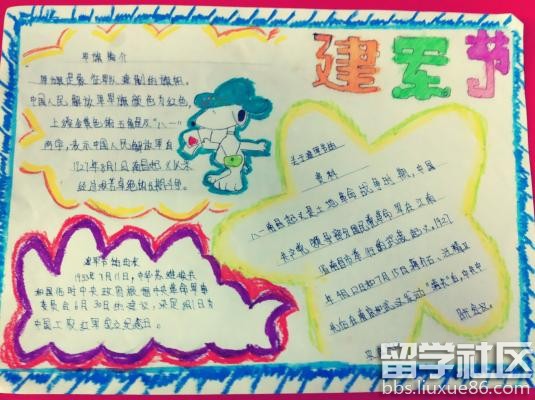 建军节
军旗简介
军旗是象征军队建制的旗帜。
中国人民解放军军旗颜色为红色,
上缀金黄色的五角星及"八一"
两字,表示中国人民解放军自
1927年8月1日南昌起义以来
经过
建军节的由来
1933年7月11日,中华苏维埃共
和国临时中央政府根据中央革命军事
委员会6月30日的建议,决定8月1日为
中国工农红军成立纪念日。
关于建军节的
资料
八一南昌起义是土地革命战争时期,中国
共产党领导部分国民革命军在江西
省南昌市举行的武装起义。1927
年4月12日和7月15日
在
留学社区
bbs.liuxue86.com